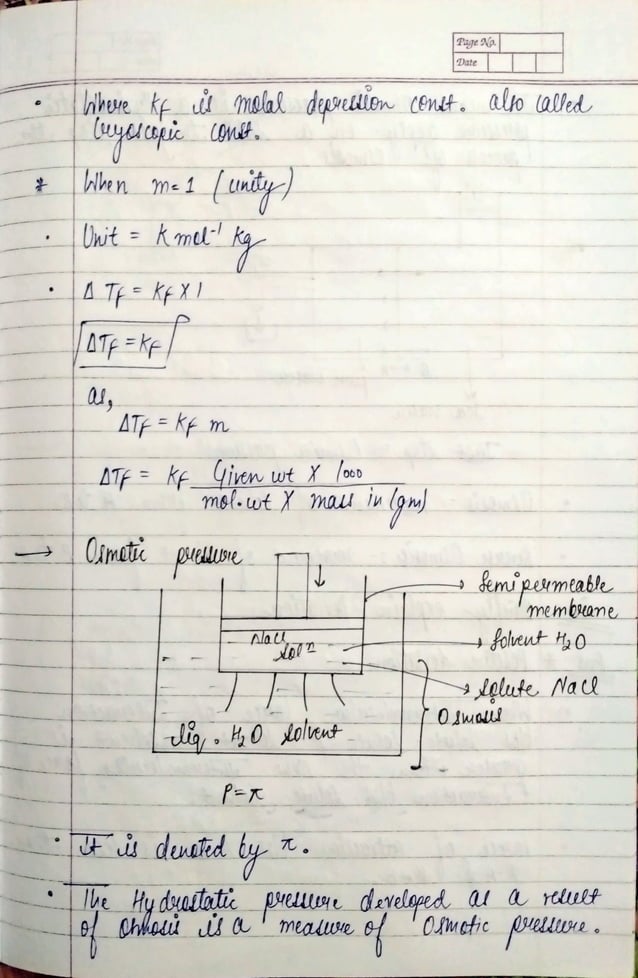 Page No.
Date
• Where Kf is molal depression const. also called
Cryoscopic const.
* When m=1 (unity)
• Unit = K mol⁻¹ kg
• Δ Tf = Kf X 1
ΔTf = Kf
as,
ΔTf = Kf m
ΔTf = Kf Given wt X 1000
mol. wt X mass in (gm)
→ Osmotic pressure
Semipermeable
membrane
NaCl
Solⁿ
Solvent H₂O
Solute NaCl
Osmosis
liq. H₂O Solvent
P = π
• It is denoted by π.
• The Hydrostatic pressure developed as a result
of Osmosis is a measure of Osmotic pressure.